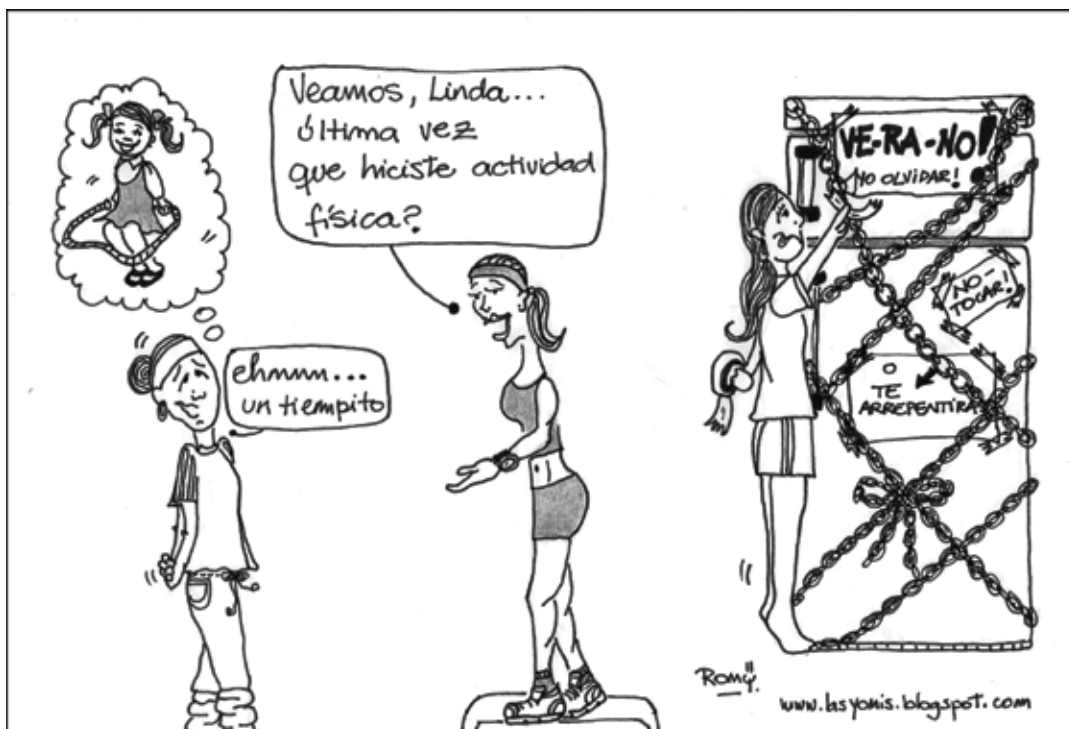 Veamos, Linda...
última vez
que hiciste actividad
física?
ehmmm...
un tiempito
VE-RA-NO!
¡YO OLVIDAR!
NO-
TOCAR!
O
TE
ARREPENTIRA
Romy
www.lasyomis.blogspot.com